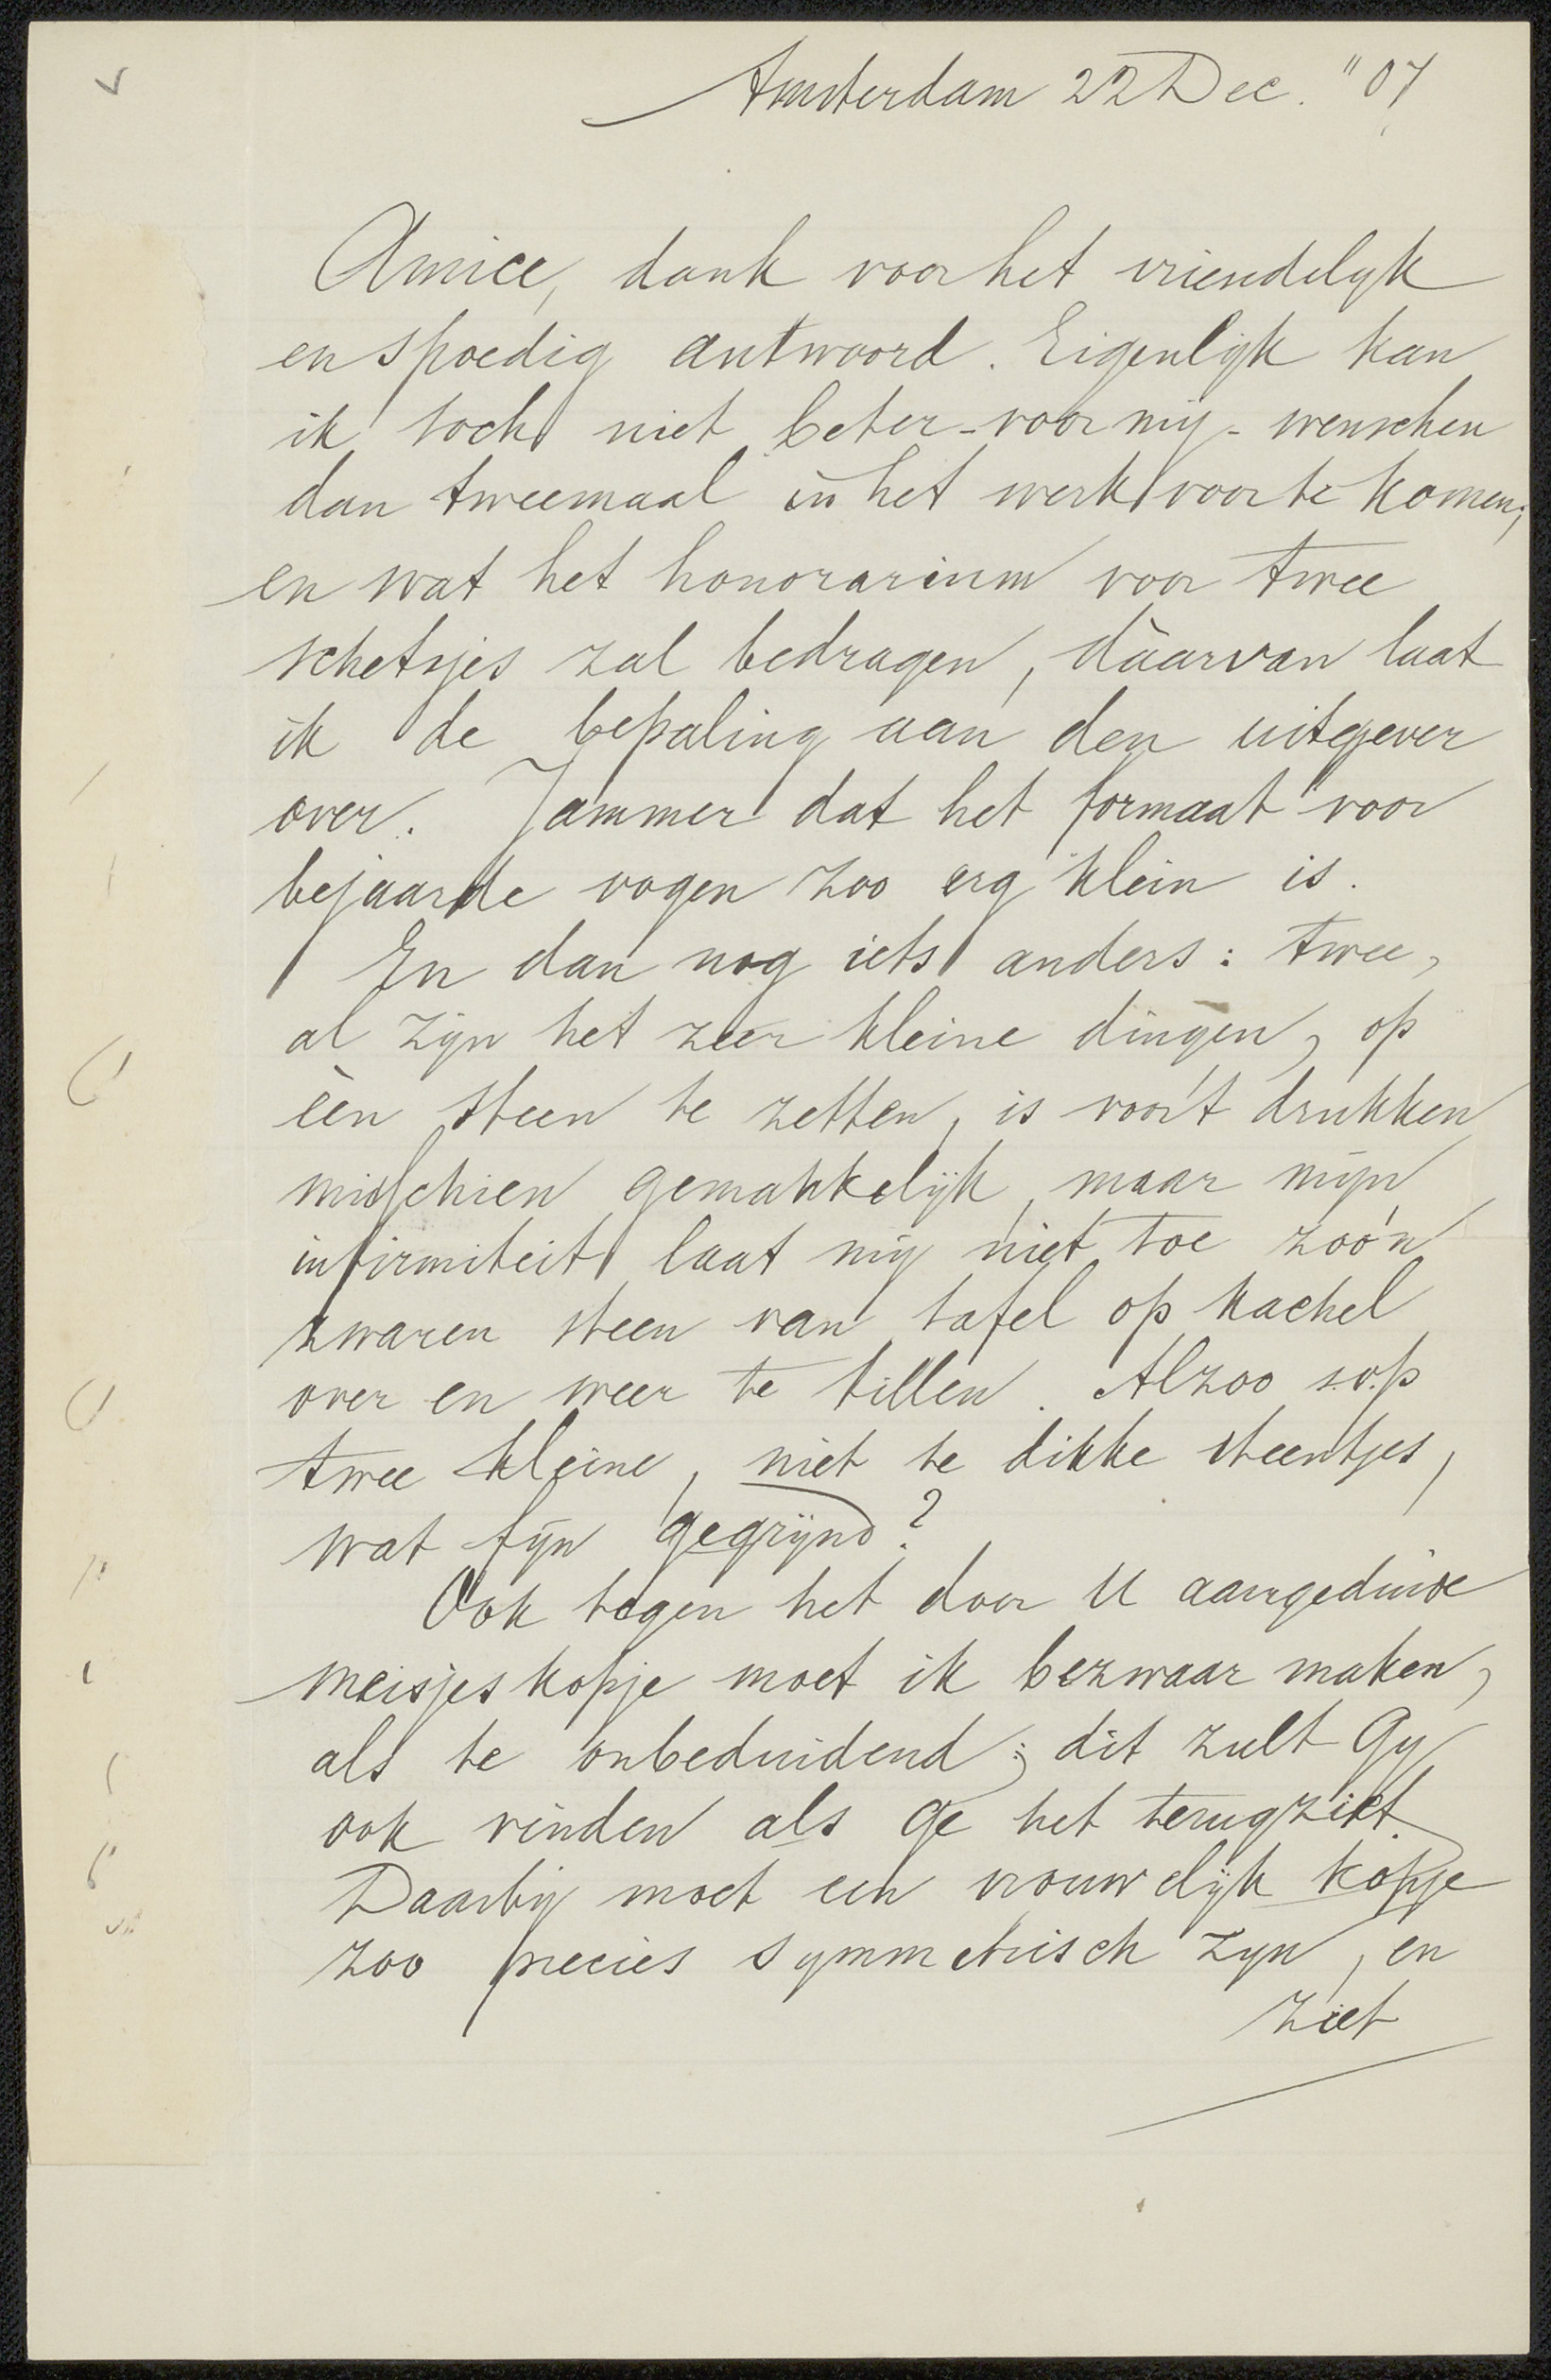 Amsterdam 22 Dec. "07
Amice, dank voor het vriendelyk
en spoedig antwoord. Eigenlijk kan
ik toch niet beter - voor mij - wenschen
dan tweemaal in het werk voor te komen;
en wat het honorarium voor twee
schetsjes zal bedragen, dàarvan laat
ik de bepaling aan den uitgever
over. Jammer dat het formaat voor
bejaarde oogen zoo erg klein is.
En dan nog iets anders: twee,
al zijn het zeer kleine dingen, op
èèn steen te zetten, is voor 't drukken
misschien gemakkelijk, maar mijn
infirmiteit laat mij niet toe zoo'n
zwaren steen van tafel op kachel
over en weer te tillen. Alzoo s.v.p
twee kleine, niet te dikke steentjes,
wat fijn gegrijnd?
Ook tegen het door U aangeduide
meisjeskopje moet ik bezwaar maken,
als te onbeduidend; dit zult Gy
ook vinden als ge het terugziet.
Daarbij moet een vrouwelijk kopje
zoo precies symmetrisch zyn, en
ziet